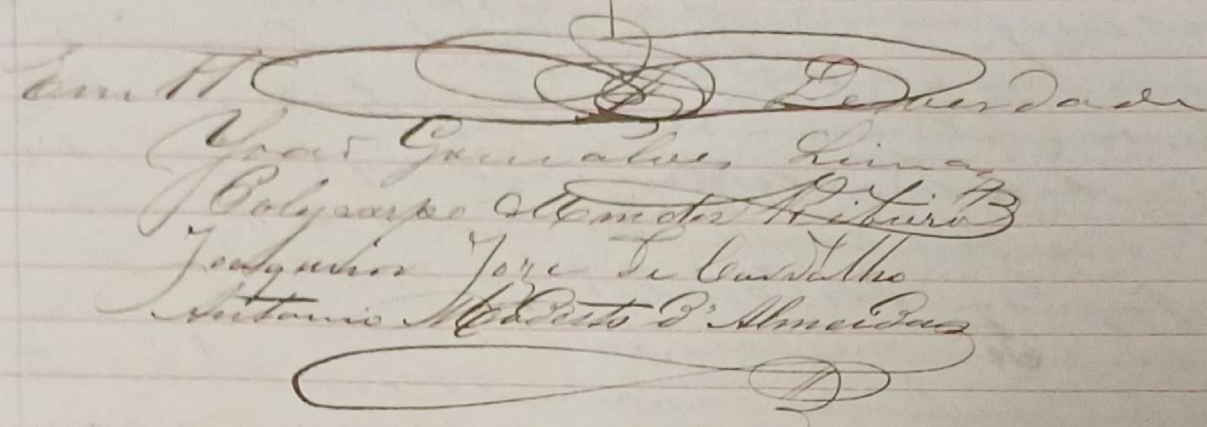 Em tt de verdade
João Gonçalves Lima
Polycarpo Mendes Ribeiro
Joaquim Joze de Carvalho
Antonio Modesto d'Almeida